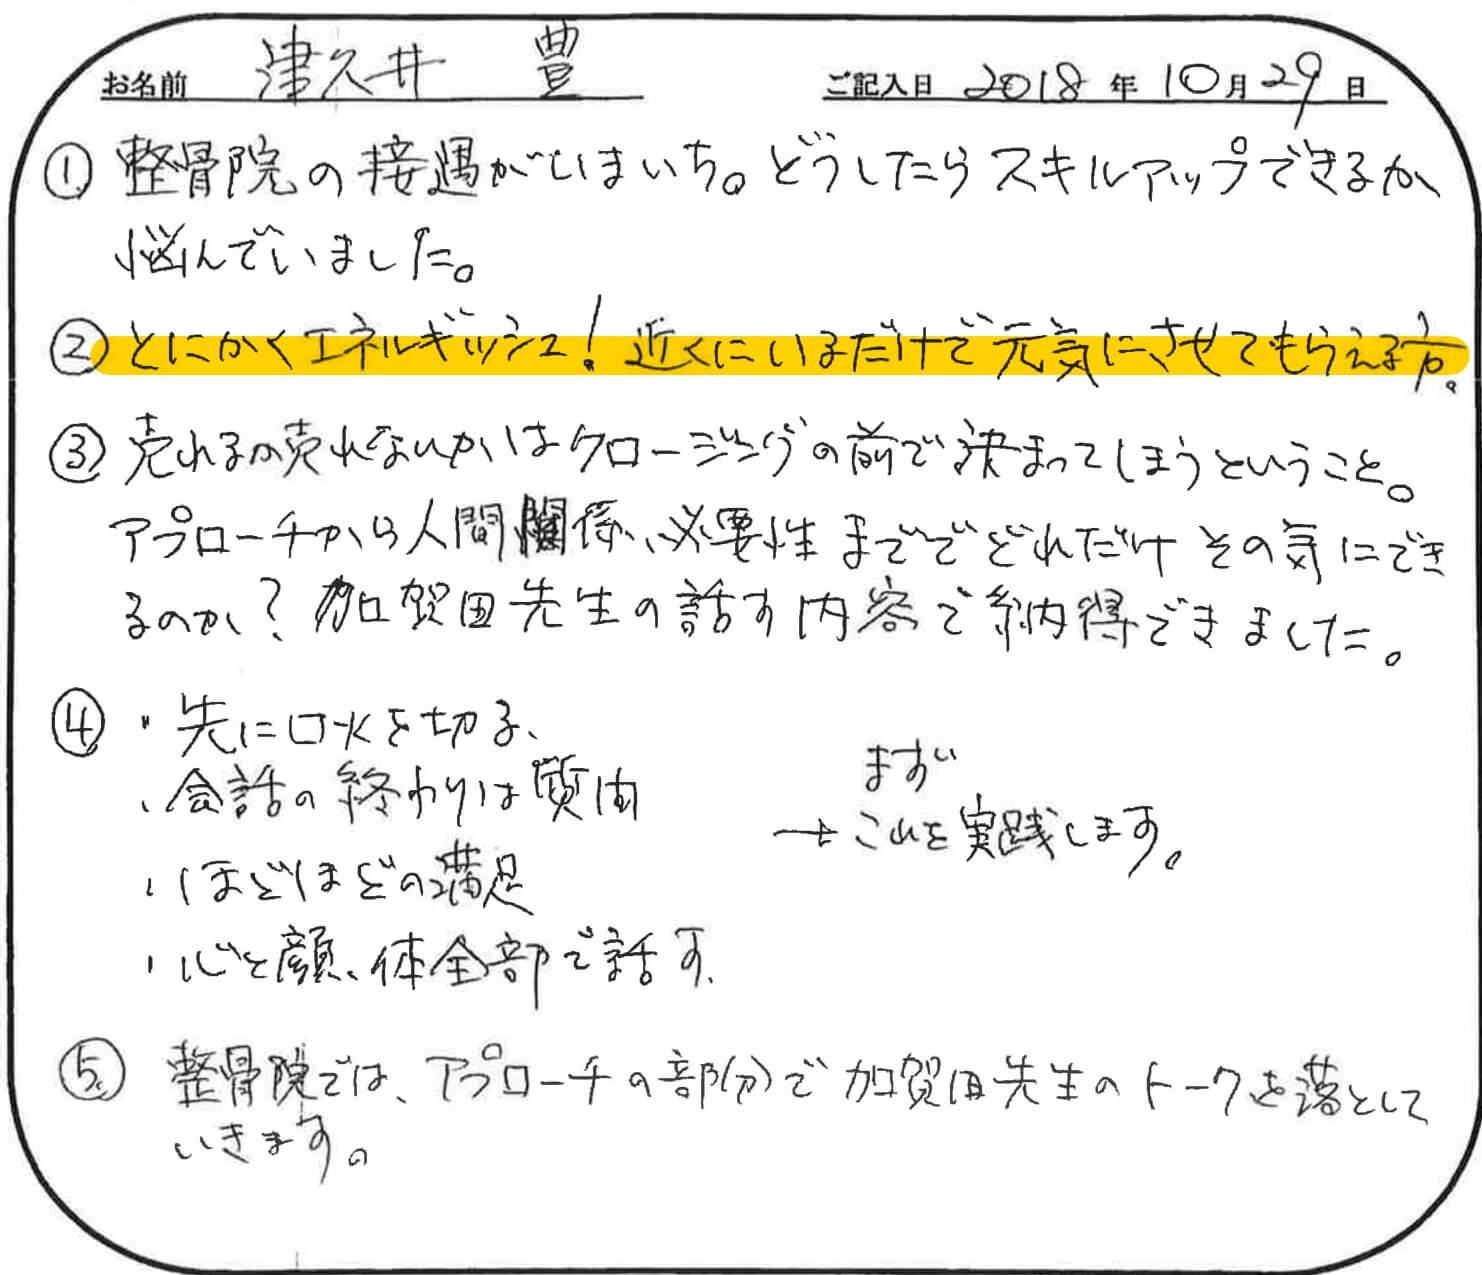 お名前 津久井 豊 ご記入日 2018 年 10 月 29 日
① 整骨院の接遇がいまいち。どうしたらスキルアップできるか
悩んでいました。
② とにかくエネルギッシュ!近くにいるだけで元気にさせてもらえる方。
③ 売れるか売れないかはクロージングの前で決まってしまうということ。
アプローチから人間関係、必要性まででどれだけその気にでき
るのか?加賀田先生の話す内容で納得できました。
④ ・先に口火を切る、
・会話の終わりは質問
・ほどほどの満足
・心と顔、体全部で話す、
まずい
→これを実践します。
⑤ 整骨院では、アプローチの部分で加賀田先生のトークを落として
いきます。